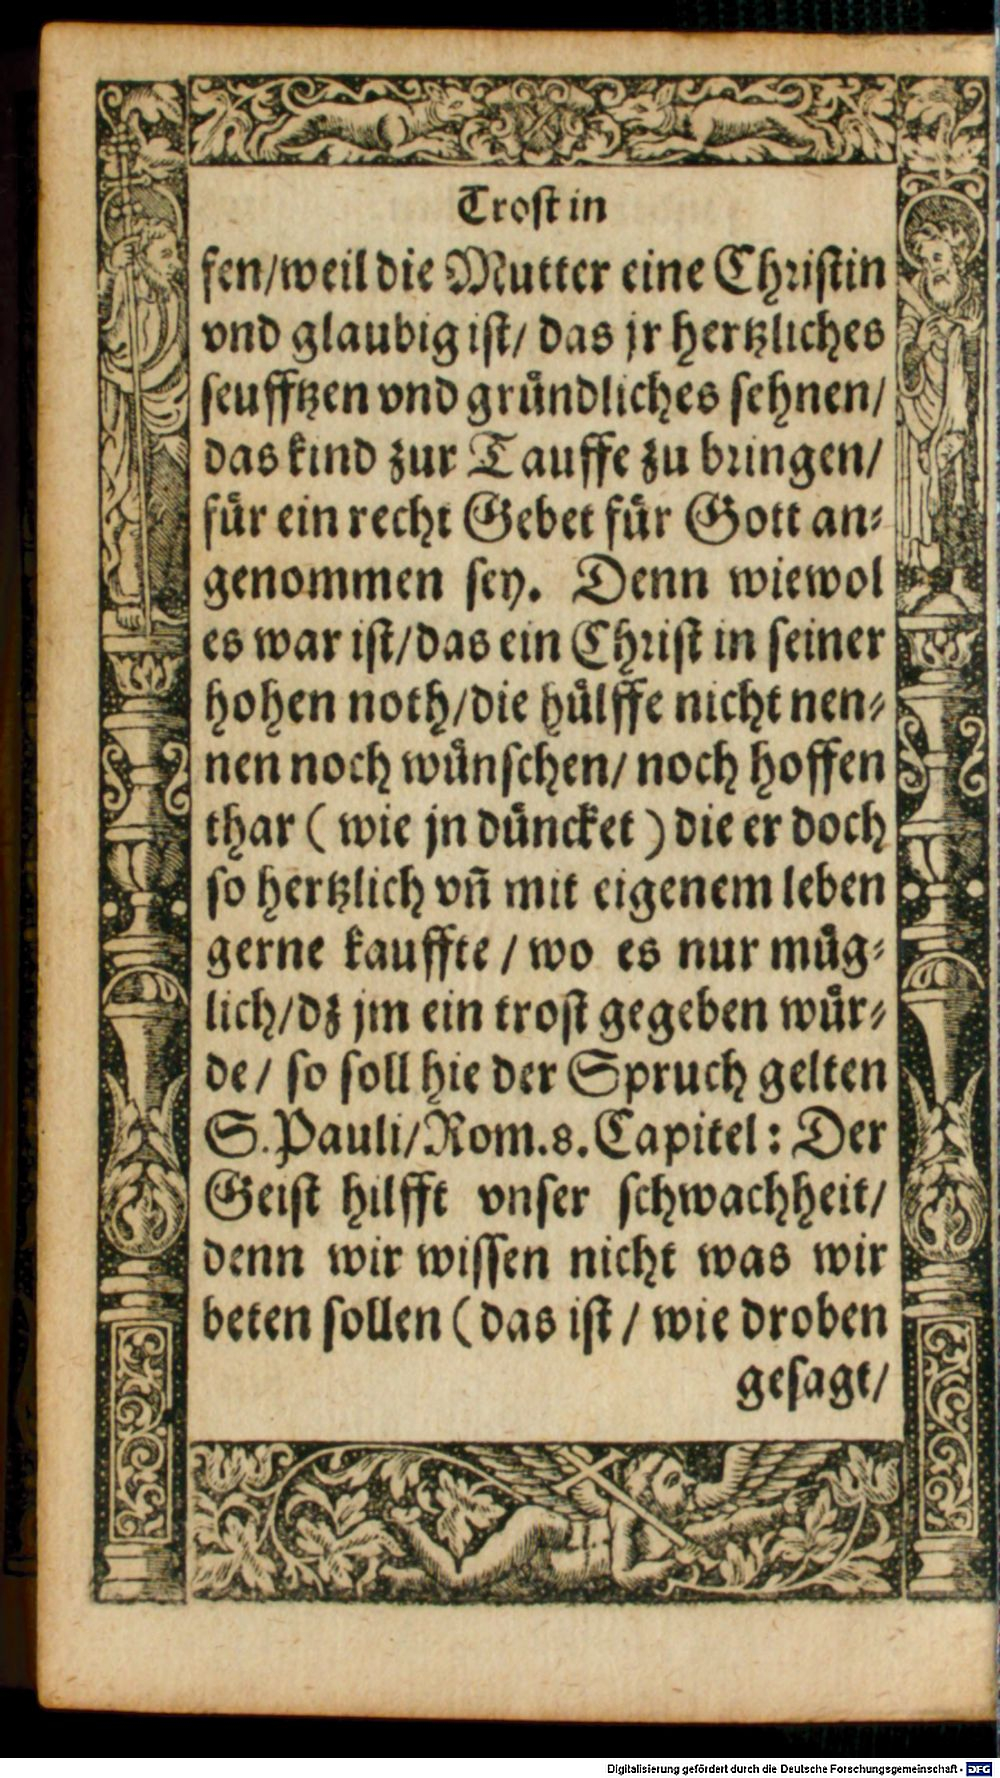 Troſt in
fen/weil die Mutter eine Chriſtin
vnd glaubig iſt/ das jr hertzliches
ſeufftzen vnd gruͤndliches ſehnen/
das kind zur Tauffe zu bringen/
fuͤr ein recht Gebet fuͤr Gott an⸗
genommen ſey. Denn wiewol
es war iſt/das ein Chriſt in ſeiner
hohen noth/die huͤlffe nicht nen⸗
nen noch wuͤnſchen/ noch hoffen
thar ( wie jn duͤncket ) die er doch
ſo hertzlich vñ mit eigenem leben
gerne kauffte / wo es nur muͤg⸗
lich/dz jm ein troſt gegeben wuͤr⸗
de/ ſo ſoll hie der Spruch gelten
S. Pauli/Rom.8. Capitel: Der
Geiſt hilfft vnſer ſchwachheit/
denn wir wiſſen nicht was wir
beten ſollen (das iſt / wie droben
geſagt/
Digitalisierung gefördert durch die Deutsche Forschungsgemeinschaft - DFG